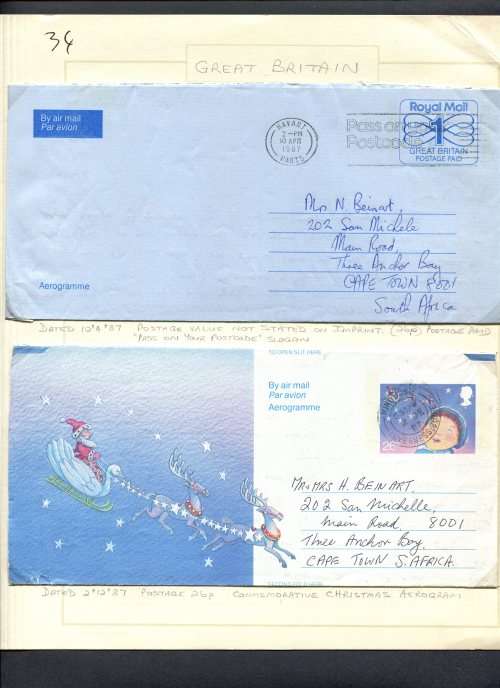 34
GREAT BRITAIN
By air mail
Par avion
HAVANT
2-PM
10 APR
1987
HANTS
Pass on your
Postcode
Royal Mail
1
GREAT BRITAIN
POSTAGE PAID
Mrs N. Beinart,
202 San Michele
Main Road,
Three Anchor Bay
CAPE TOWN 8001
South Africa
Aerogramme
DATED 10'4'87 POSTAGE VALUE NOT STATED ON IMPRINT. POSTAGE PAID
"PASS ON YOUR POSTCODE" SLOGAN
TO OPEN SLIT HERE
By air mail
Par avion
Aerogramme
26
MR & MRS H. BEINART.
202 San Michelle,
Main Road. 8001
Three Anchor Bay.
CAPE TOWN S. AFRICA.
DATED 2'12'87 POSTAGE 26p COMMEMORATIVE CHRISTMAS AEROGRAM